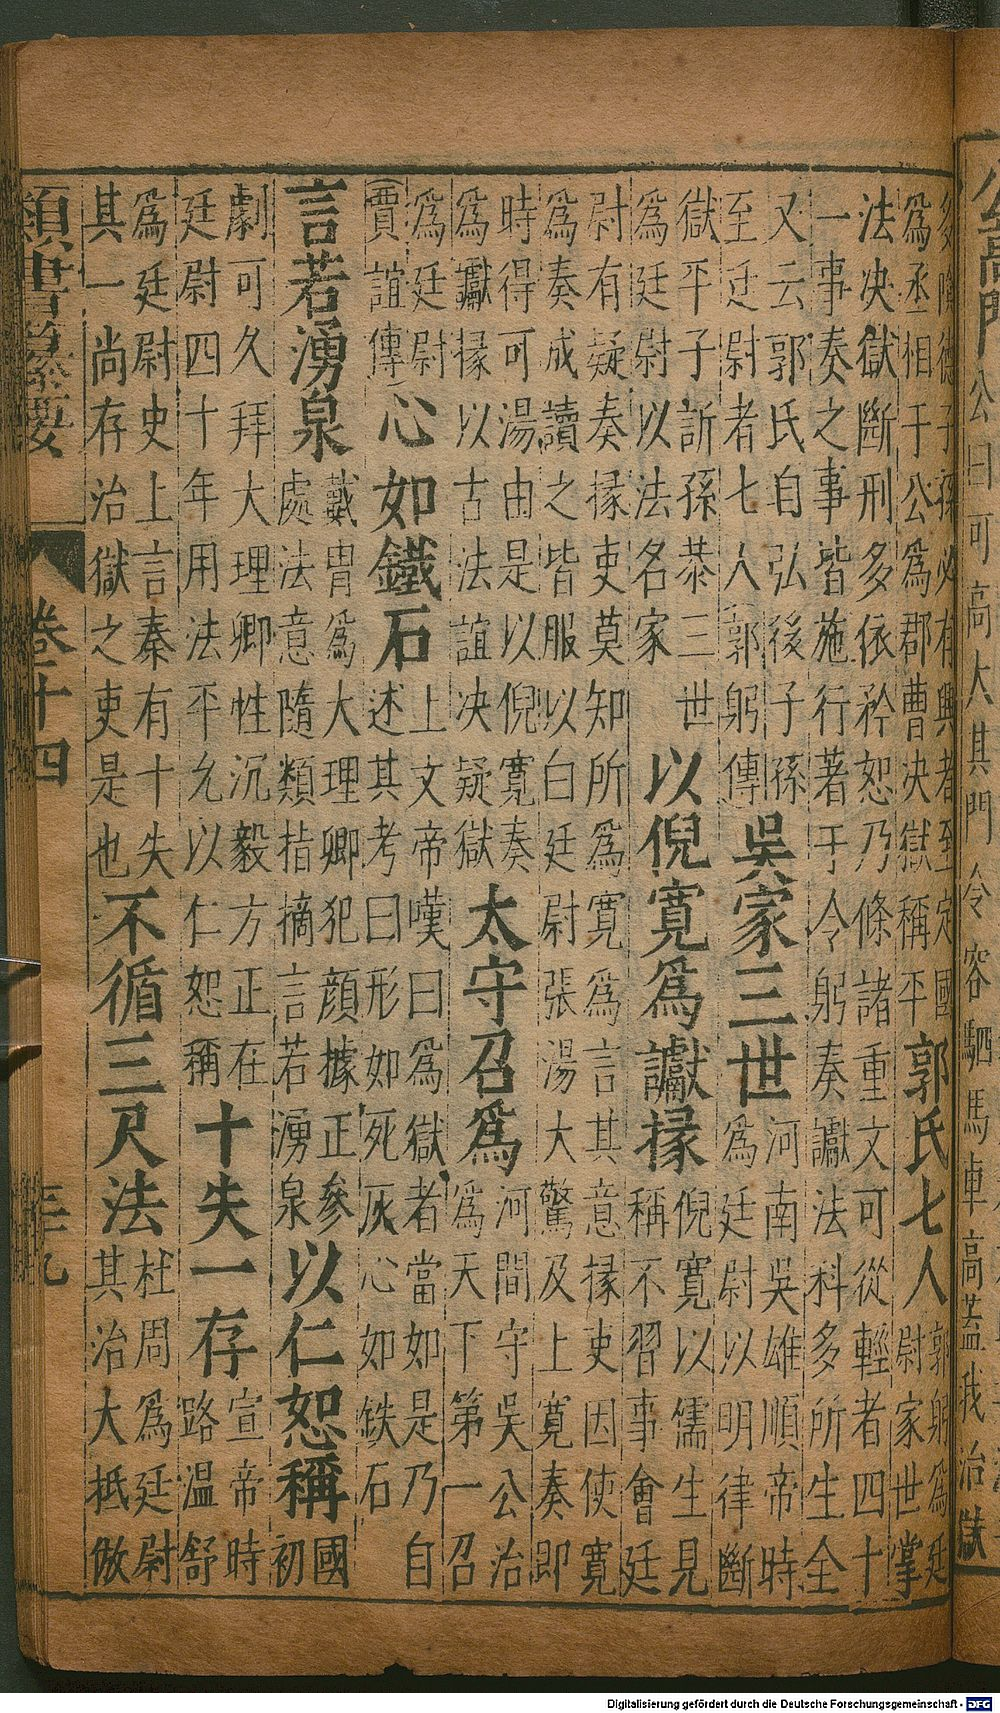 公高門
公曰可高大其門令容駟馬車高蓋我治獄
多陰德子孫必有興者至定國
為丞相于公為郡曹決獄稱平
郭氏七人
郭躬為廷
尉家世掌
法決獄斷刑多依矜恕乃條諸重文可從輕者四十
一事奏之事皆施行著于令躬奏讞法科多所生全
又云郭氏自弘後子孫
至廷尉者七人(郭躬傳)
吳家三世
河南吳雄順帝時
為廷尉以明律斷
獄平子訢孫恭三世
為廷尉以法名家
以倪寬為讞掾
倪寬以儒生見
稱不習事會廷
尉有疑奏掾吏莫知所為寬為言其意掾吏因使寬
為奏成讀之皆服以白廷尉張湯大驚及上寬奏即
時得可湯由是以倪寬奏
為讞掾以古法誼決疑獄
太守召為
河間守吳公治
為天下第一召
為廷尉
(賈誼傳)
心如鐵石
上文帝嘆曰為獄者當如是乃自
述其考曰形如死灰心如鉄石
言若湧泉
戴胄為大理卿犯顏據正參
處法意隨類指摘言若湧泉
以仁恕稱
國
初
劇可久拜大理卿性沉毅方正在
廷尉四十年用法平允以仁恕稱
十失一存
宣帝時
路溫舒
為廷尉史上言秦有十失
其一尚存治獄之吏是也
不循三尺法
杜周為廷尉
其治大抵倣
類書纂要
卷二十四
三九
Digitalisierung gefördert durch die Deutsche Forschungsgemeinschaft - DFG